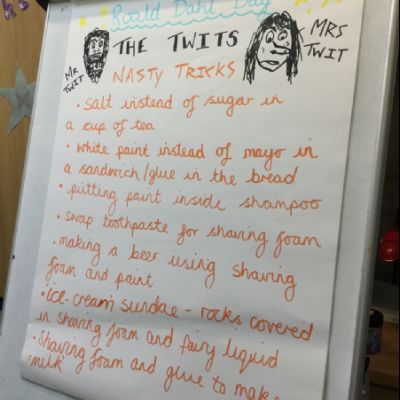 Roald Dahl Day
THE TWITS
MR
TWIT
MRS
TWIT
NASTY TRICKS
• salt instead of sugar in
a cup of tea
• white paint instead of mayo in
a sandwich/glue in the bread
• putting paint inside shampoo
• swap toothpaste for shaving foam
• making a beer using shaving
foam and paint
• ice-cream sundae - rocks covered
in shaving foam and fairy liquid
• Shaving foam and glue to make
'milk'